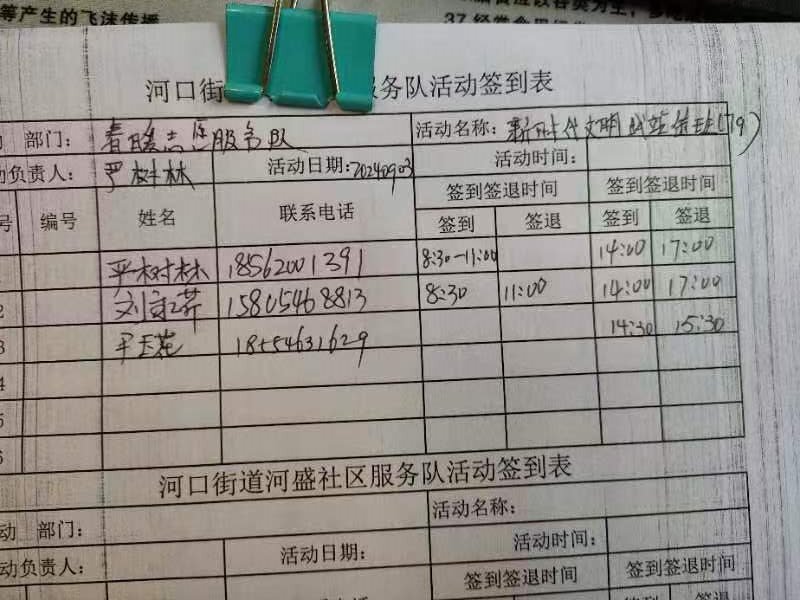 等产生的飞沫传播
河口街 服务队活动签到表
部门: 春暖志愿服务队 活动名称: 新时代文明 站值班(79)
动负责人: 严树林 活动日期: 20240903 活动时间:
号 编号 姓名 联系电话 签到签退时间 签到签退时间
签到 签退 签到 签退
严树林 18562001391 8:30-11:00 14:00 17:00
2 刘 芹 15805468813 8:30 11:00 14:00 17:00
3 18554631629 14:30 15:30
4
5
6
河口街道河盛社区服务队活动签到表
动 部门: 活动名称:
动负责人: 活动日期: 活动时间:
签到签退时间 签到签退时间